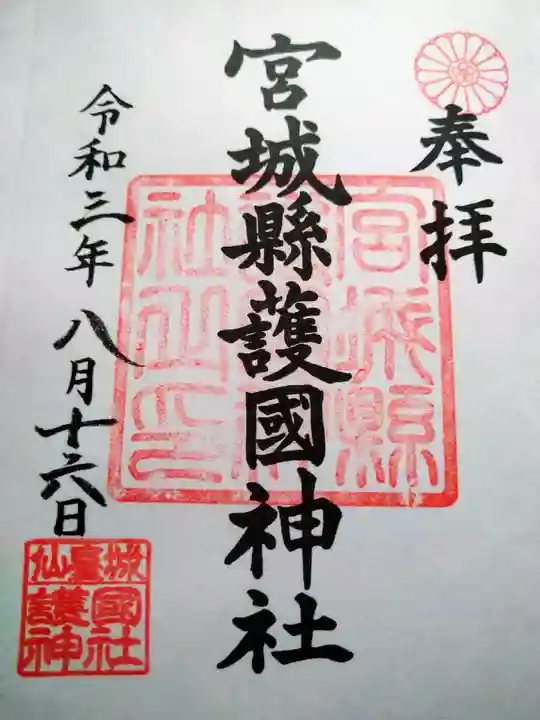 奉拝
宮城縣護國神社
令和三年八月十六日
宮城縣
社之印
仙臺城
護國
神社